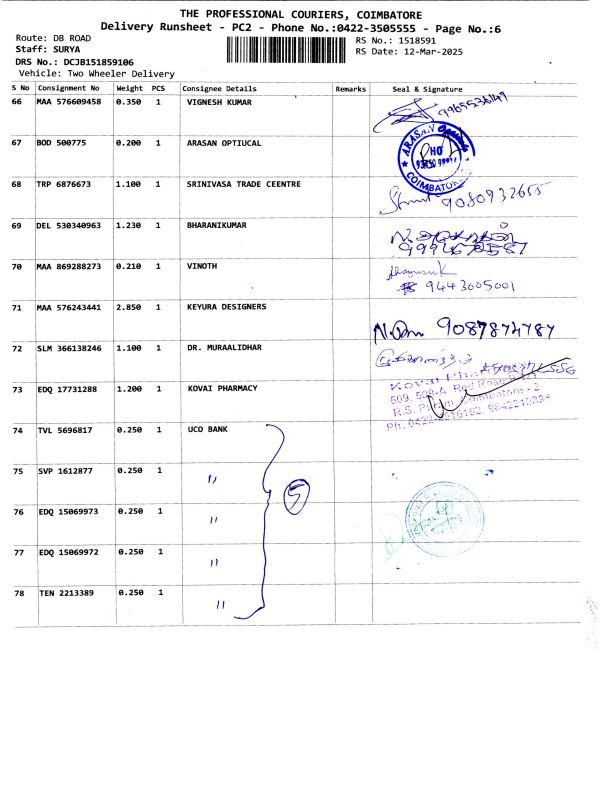 THE PROFESSIONAL COURIERS, COIMBATORE
Delivery Runsheet - PC2 - Phone No.:0422-3505555 - Page No.:6
Route: DB ROAD
RS No.: 1518591
Staff: SURYA
RS Date: 12-Mar-2025
DRS No.: DCJB151859106
Vehicle: Two Wheeler Delivery
S No Consignment No Weight PCS Consignee Details Remarks Seal & Signature
66 MAA 576609458 0.350 1 VIGNESH KUMAR
67 BOD 500775 0.200 1 ARASAN OPTIUCAL ARASAN
COIMBATORE
68 TRP 6876673 1.100 1 SRINIVASA TRADE CEENTRE 9080932655
69 DEL 530340963 1.230 1 BHARANIKUMAR
70 MAA 869288273 0.210 1 VINOTH
9443605001
71 MAA 576243441 2.850 1 KEYURA DESIGNERS 9087874787
72 SLM 366138246 1.100 1 DR. MURAALIDHAR
73 EDQ 17731288 1.200 1 KOVAI PHARMACY
74 TVL 5696817 0.250 1 UCO BANK
75 SVP 1612877 0.250 1 "
5
76 EDQ 15069973 0.250 1 "
77 EDQ 15069972 0.250 1 "
78 TEN 2213389 0.250 1 "